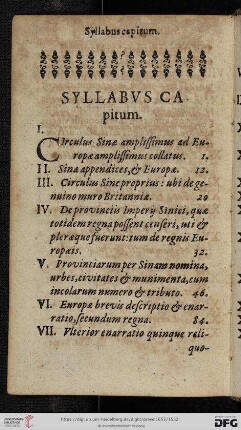 Syllabus capitum.
SYLLABVS CA-
pitum.
I.
CIrculus Sinæ amplissimus ad Eu-
ropæ amplissimus collatus. 1.
II. Sinæ appendices, & Europæ. 12.
III. Circulus Sinæ proprius: ubi de ge-
nuino muro Britanniæ. 20
IV. De provinciis Imperij Sinici, quæ
totidem regna possent censeri, uti &
pleraque fuerunt: tum de regnis Eu-
ropæis. 32.
V. Provinciarum per Sinam nomina,
urbes, civitates & munimenta, cum
incolarum numero & tributo. 46.
VI. Europæ brevis descriptio & enar-
ratio, secundum regna. 84.
VII. Vlterior enarratio quinque reli-
quo-
DFG